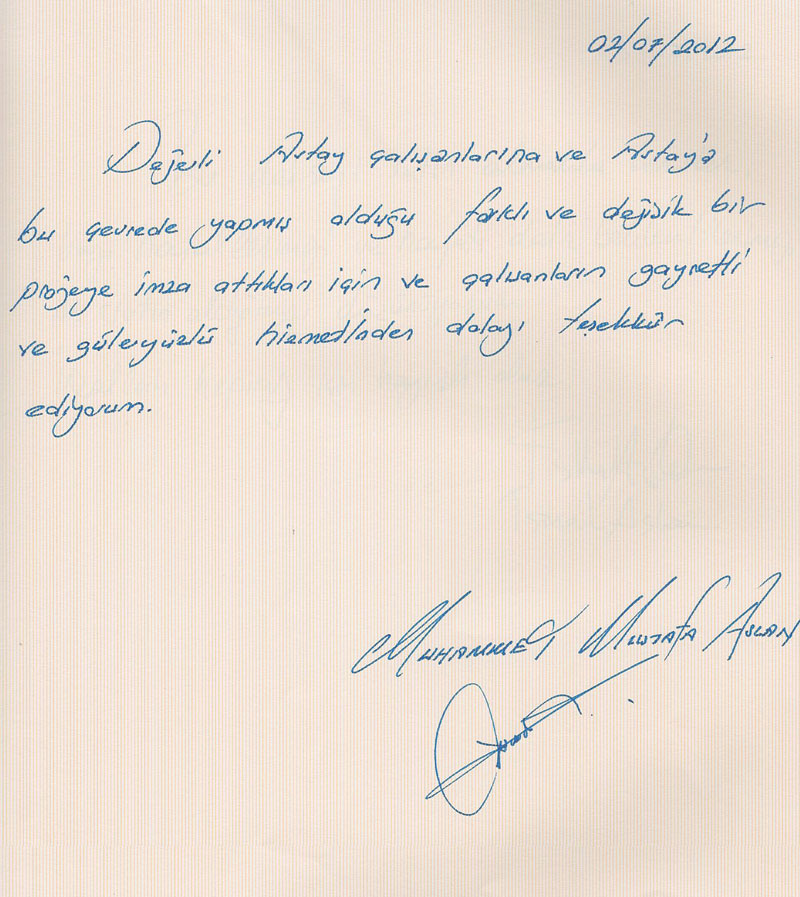 02/07/2012
Değerli Artay çalışanlarına ve Artay'a
bu çevrede yapmış olduğu farklı ve değişik bir
projeye imza attıkları için ve çalışanların gayretli
ve güleryüzlü hizmetinden dolayı teşekkür
ediyorum.
Muhammet Mustafa Aslan